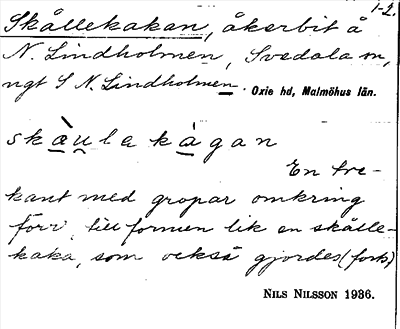 1-2.
Skållekakan, åkerbit å
N. Lindholmen, Svedala sn,
ngt S N. Lindholmen. Oxie hd, Malmöhus län.
skæ̀u̯lakàgan
En tre-
kant med gropar omkring
förr, till formen lik en skålle-
kaka, som också gjordes (fork)
NILS NILSSON 1936.